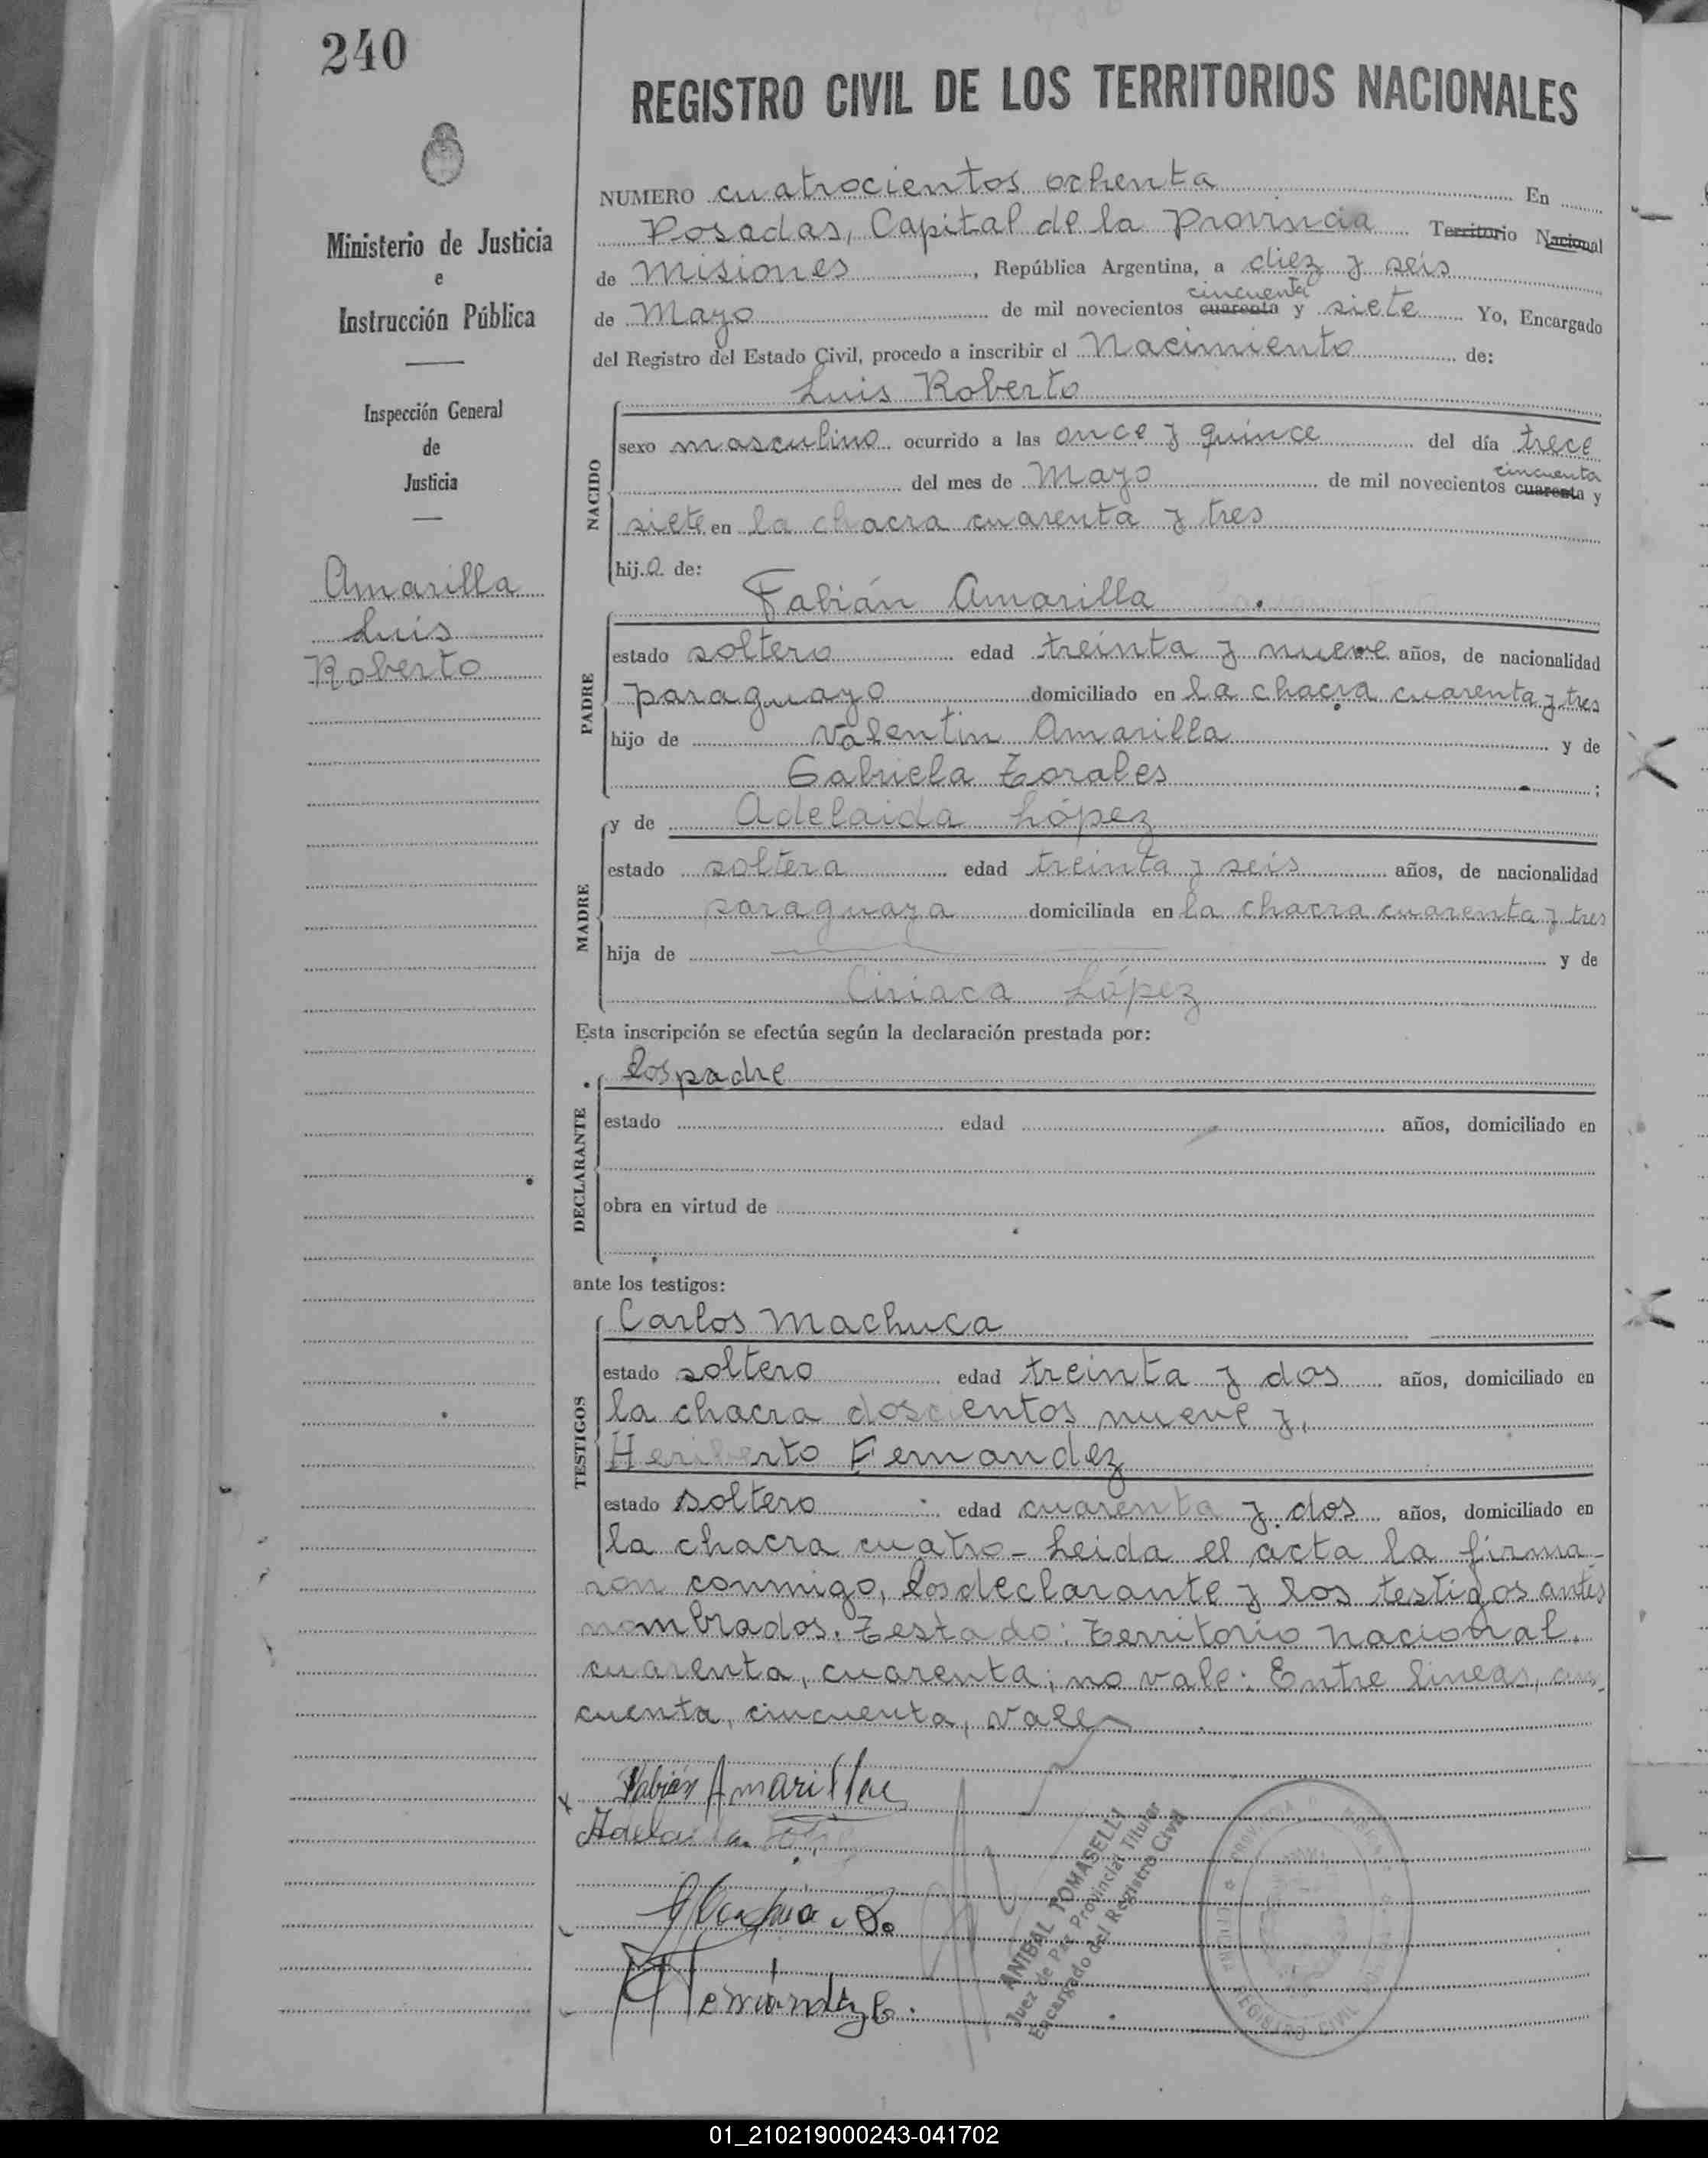 240
REGISTRO CIVIL DE LOS TERRITORIOS NACIONALES
Ministerio de Justicia
e
Instrucción Pública
Inspección General
de
Justicia
Amarilla
Luis
Roberto
NUMERO cuatrocientos ochenta En
Posadas, Capital de la Provincia Territorio Nacional
de Misiones, República Argentina, a diez y seis
cincuenta
de Mayo de mil novecientos cuarenta y siete Yo, Encargado
del Registro del Estado Civil, procedo a inscribir el Nacimiento de:
Luis Roberto
NACIDO
sexo masculino ocurrido a las once y quince del día trece
cincuenta
del mes de Mayo de mil novecientos cuarenta y
siete en la chacra cuarenta y tres
hijo de:
PADRE
Fabián Amarilla
estado soltero edad treinta y nueve años, de nacionalidad
paraguayo domiciliado en la chacra cuarenta y tres
hijo de Valentin Amarilla y de
Gabriela Torales ;
MADRE
y de Adelaida López
estado soltera edad treinta y seis años, de nacionalidad
paraguaya domiciliada en la chacra cuarenta y tres
hija de y de
Ciriaca López
Esta inscripción se efectúa según la declaración prestada por:
DECLARANTE
los padre
estado edad años, domiciliado en
obra en virtud de
ante los testigos:
TESTIGOS
Carlos Machuca
estado soltero edad treinta y dos años, domiciliado en
la chacra doscientos nueve y,
Heriberto Fernandez
estado soltero edad cuarenta y dos años, domiciliado en
la chacra cuatro - Leida el acta la firma-
ron conmigo, los declarante y los testigos antes
nombrados. Testado: Territorio nacional.
cuarenta, cuarenta; no vale: Entre lineas, cin-
cuenta, cincuenta, vale
Fabián Amarilla
Adelaida
ANIBAL TOMASELLI
Juez de Paz Provincial Titular
Encargado del Registro Civil
REGISTRO CIVIL
01_210219000243-041702